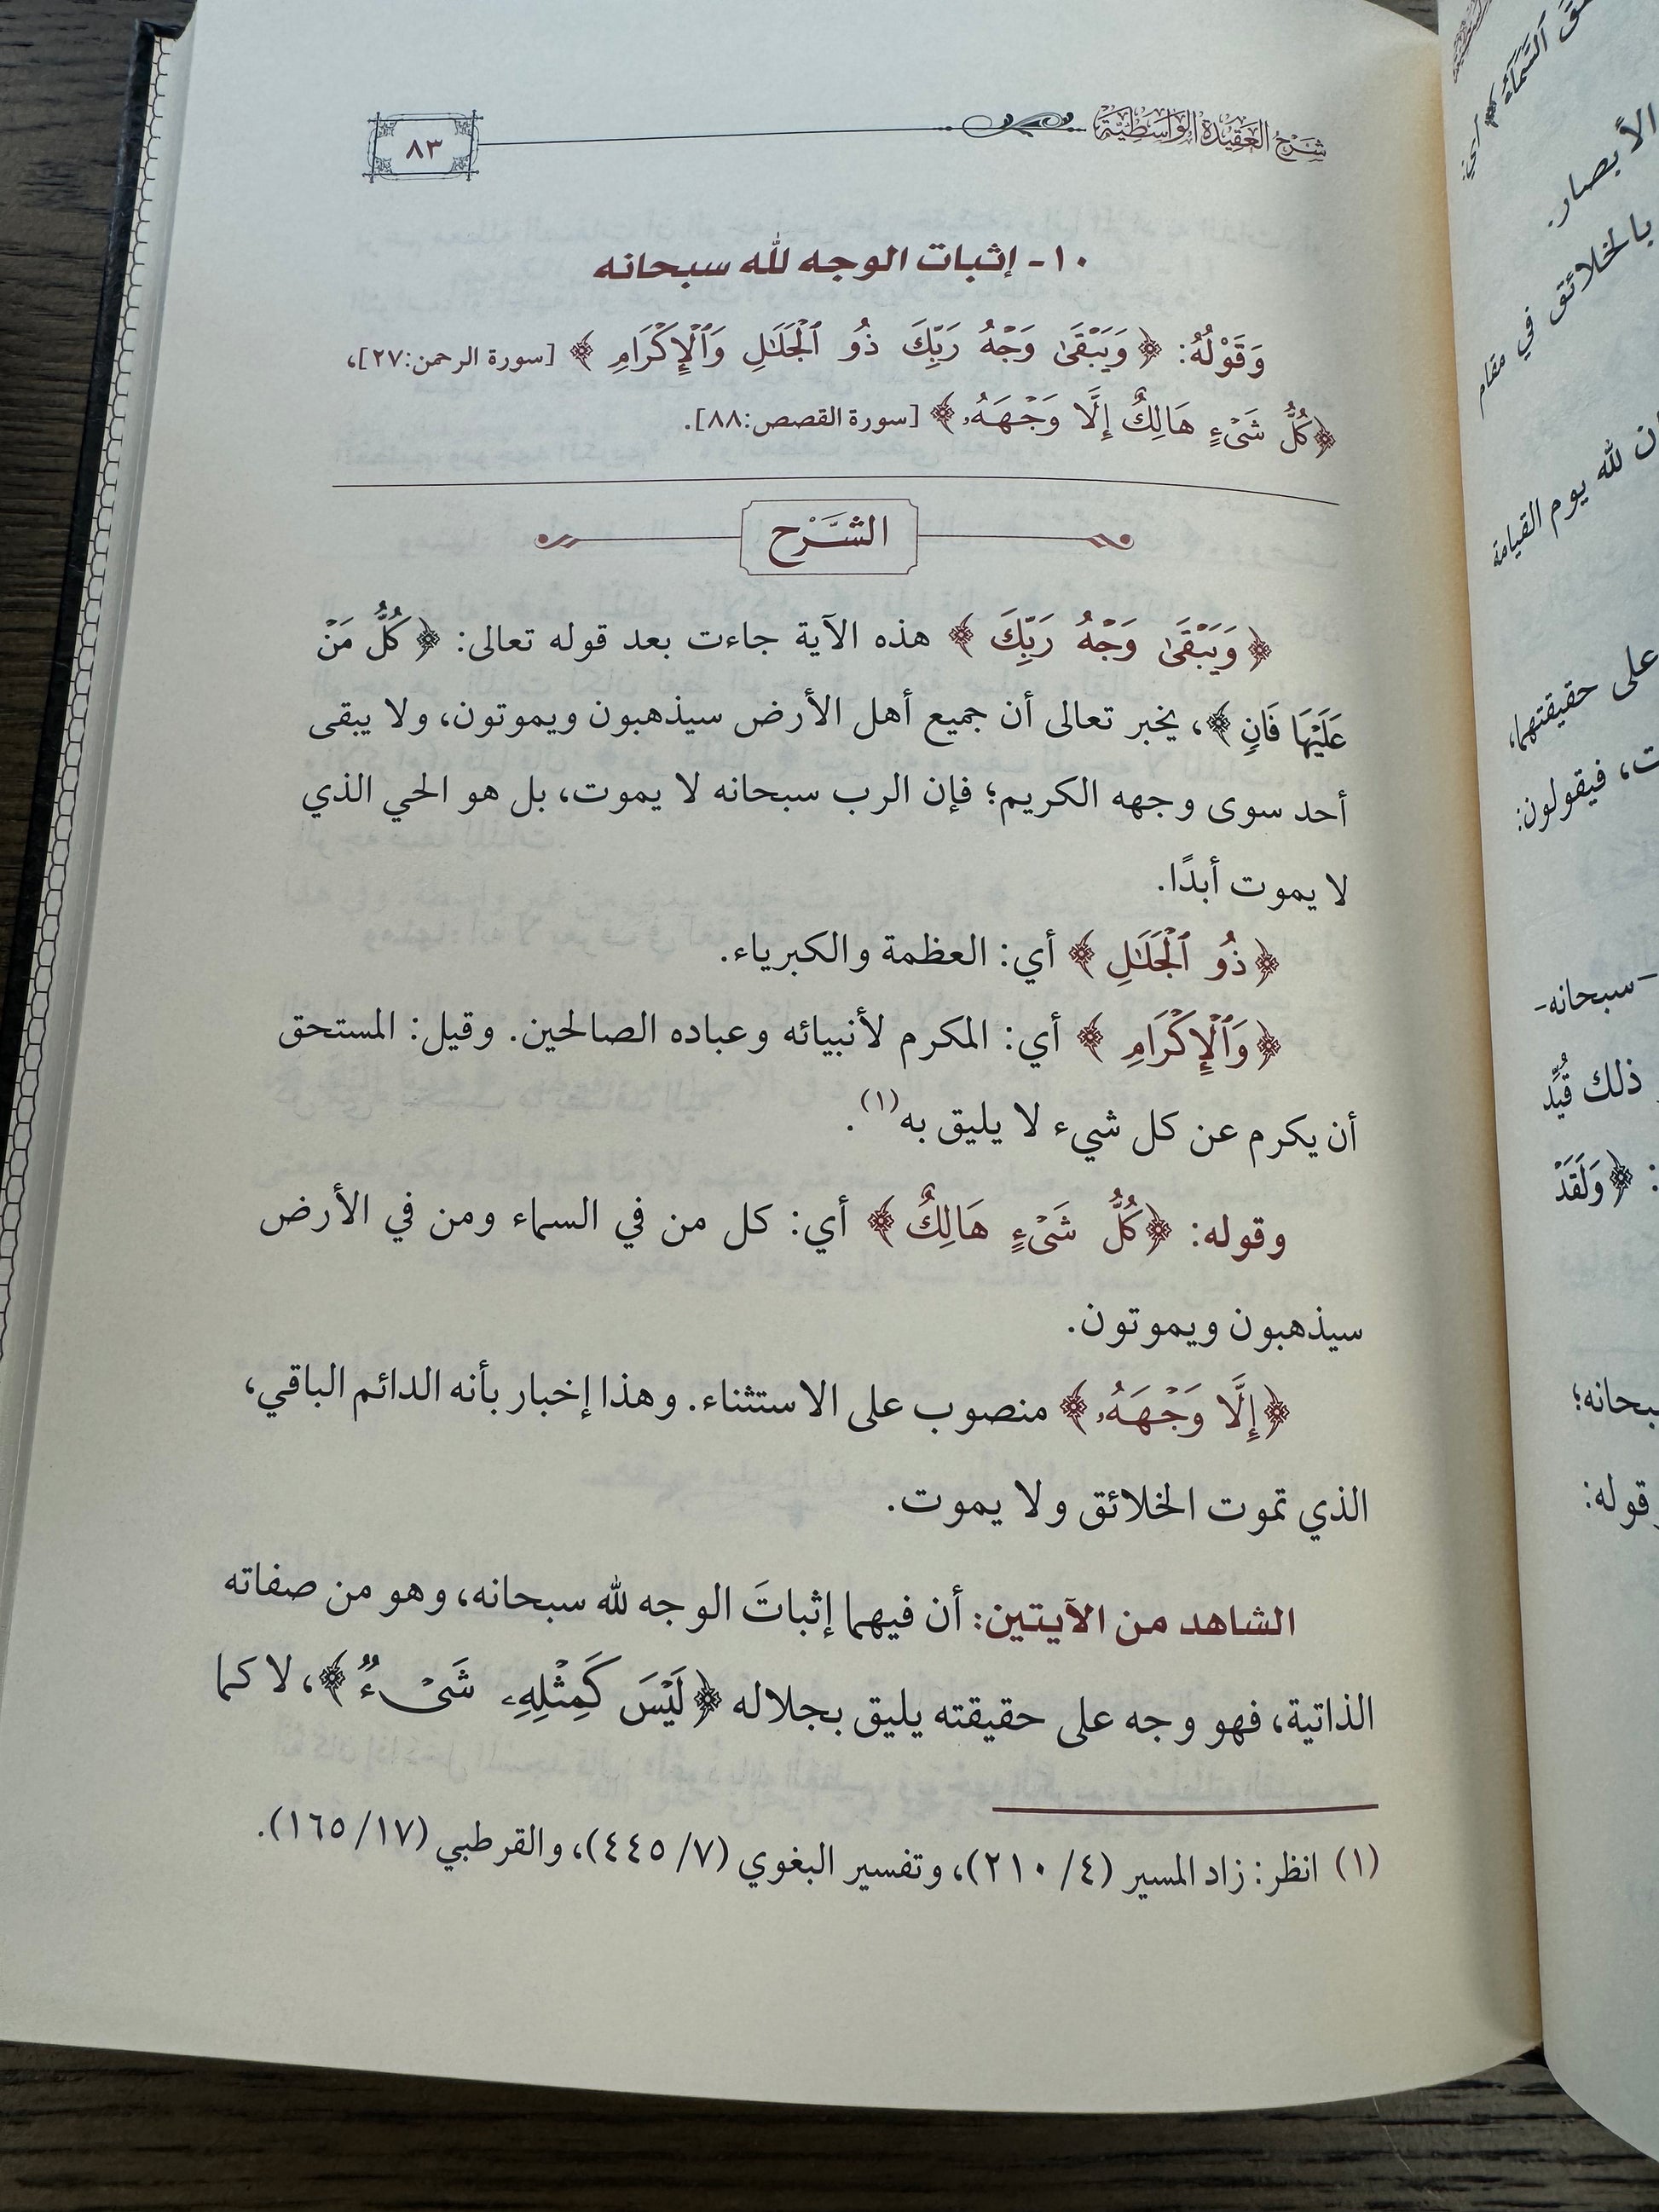 شرح العقيدة الواسطية
٨٣
١٠- إثبات الوجه لله سبحانه
وَقَوْلُهُ: ﴿وَيَبْقَىٰ وَجْهُ رَبِّكَ ذُو ٱلْجَلَـٰلِ وَٱلْإِكْرَامِ﴾ [سورة الرحمن:٢٧]،
﴿كُلُّ شَىْءٍ هَالِكٌ إِلَّا وَجْهَهُۥ﴾ [سورة القصص:٨٨].
الشَّرْح
﴿وَيَبْقَىٰ وَجْهُ رَبِّكَ﴾ هذه الآية جاءت بعد قوله تعالى: ﴿كُلُّ مَنْ
عَلَيْهَا فَانٍ﴾، يخبر تعالى أن جميع أهل الأرض سيذهبون ويموتون، ولا يبقى
أحد سوى وجهه الكريم؛ فإن الرب سبحانه لا يموت، بل هو الحي الذي
لا يموت أبدًا.
﴿ذُو ٱلْجَلَـٰلِ﴾ أي: العظمة والكبرياء.
﴿وَٱلْإِكْرَامِ﴾ أي: المكرم لأنبيائه وعباده الصالحين. وقيل: المستحق
أن يكرم عن كل شيء لا يليق به(١).
وقوله: ﴿كُلُّ شَىْءٍ هَالِكٌ﴾ أي: كل من في السماء ومن في الأرض
سيذهبون ويموتون.
﴿إِلَّا وَجْهَهُۥ﴾ منصوب على الاستثناء. وهذا إخبار بأنه الدائم الباقي،
الذي تموت الخلائق ولا يموت.
الشاهد من الآيتين: أن فيهما إثباتَ الوجه لله سبحانه، وهو من صفاته
الذاتية، فهو وجه على حقيقته يليق بجلاله ﴿لَيْسَ كَمِثْلِهِۦ شَىْءٌ﴾، لا كما
(١) انظر: زاد المسير (٤/ ٢١٠)، وتفسير البغوي (٧/ ٤٤٥)، والقرطبي (١٧/ ١٦٥).
السَّمَاءِ
الأبصار.
بالخلائق في مقام
لله يوم القيامة
على حقيقتهما،
فيقولون:
-سبحانه-
ذلك قُيِّد
: ﴿وَلَقَدْ
قوله: